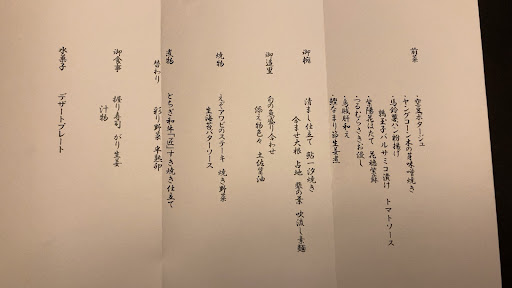 前菜
・空豆ポタージュ
・ヤングコーン木の芽味噌焼き
・馬鈴薯パン粉揚げ
鶉玉子バルサミコ漬け トマトソース
・紫陽花ほたて 花穂紫蘇
・つるむらさきお浸し
和え
・鰹なまり節生姜煮
御椀
清まし仕立て 鮎一汐焼き
含ませ大根 占地 吹流し素麺
御造里
旬の魚盛り合わせ
添え物色々 土佐醤油
焼物
えぞアワビのステーキ 焼き野菜
生海苔バターソース
煮物
替わり
とちぎ和牛「匠」すき焼き仕立て
彩り野菜 半熟卵
御食事
握り寿司 がり生姜
汁物
水菓子
デザートプレート